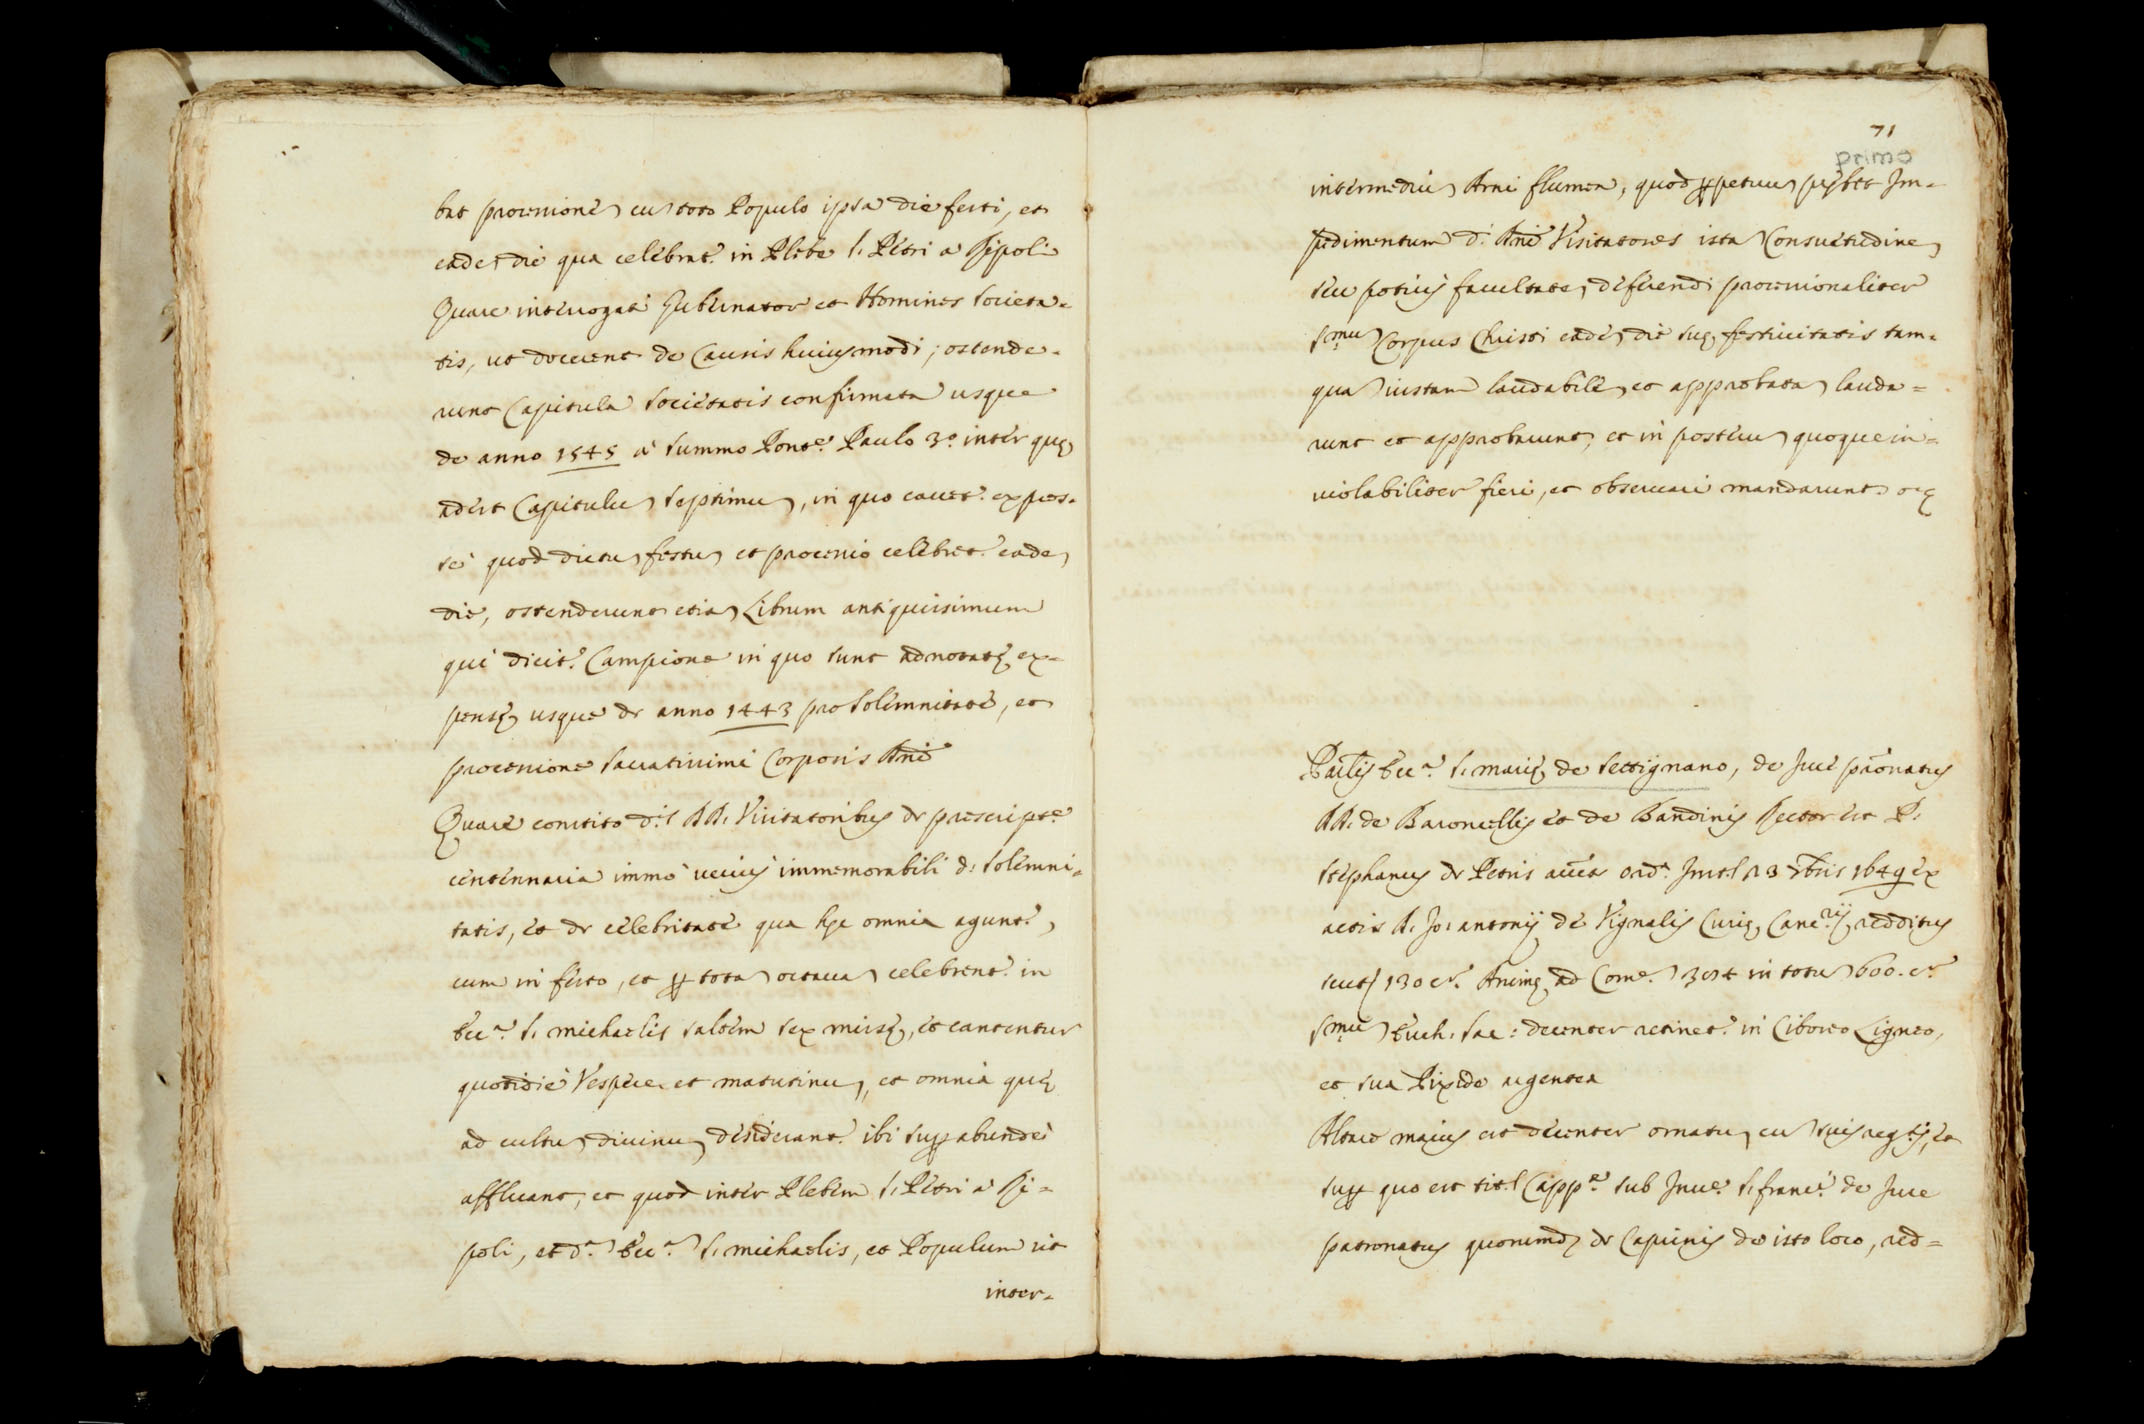 bat processione cu toto Populo ipsa die festi, et
eade die qua celebrat.r in Plebe S. Petri a Ripoli
Quare interrogati Gubernator et Homines Societa=
tis, ut docerent de Causis huiusmodi; ostende=
runt Capitula Societatis confirmata usque
de anno 1545 a Summo Pont.e Paulo 3.o inter quę
adest Capitulu septimu, in quo cavet.r expres=
se quod dictu festu et processio celebret.r eade
die, ostenderunt etia Librum antiquissimum
qui dicit.r Campione in quo sunt adnotatę ex=
pensę usque de anno 1443 pro solemnitate, et
processione Sacratissimi Corporis Xni
Quare constito d.s RR. Visitatoribus de prescript.e
centennaria immo verius immemorabili d: solemni=
tatis, et de celebritate qua hęc omnia agunt.r,
cum in festo, et per tota octava celebrent.r in
Ecc.a S. Michaelis saltem sex missę, et cantentur
quotidie Vesperę et matutinu, et omnia quę
ad cultu divinu desiderant.r ibi superabunde
affluant, et quod inter Plebem S. Petri a Ri=
poli, et d.a Ecc.a S. Michaelis, et Populum sit
inter=
71
primo
intermediu Arni flumen, quod perpetuu prębet Im=
pedimentum d: Visitatores ista Consuetudine
seu potius facultate deferendi processionaliter
S.mu Corpus Christi eade die suę festivitatis tam=
qua iustam laudabile et approbata lauda=
runt et approbarunt, et in posteru quoque in=
violabiliter fieri, et observari mandarunt. &c
Pa͞lis Ecc.a S. Marię de Settignano, de Jure p͞ronatus
RR. de Baroncellis et de Bandinis Rector est P.
Stephanus de Petris auct.e ord.a Inst. 13 1649 ex
actis R. Jo: Antonij de Vignalis Curię Canc.rij, redditus
scut. 130 c.a Animę ad Com.e 305 in totu 600. c.a
S.mu Euch. Sac: decenter retinet.r in Ciborio Ligneo,
et sua Pixide argentea
Altare maius est decenter ornatu cu suis et
super quo est tit. Capp.a sub Invc.e S. Franc.i de Jure
patronatus quorumdā de Caprinis de isto loco, red=